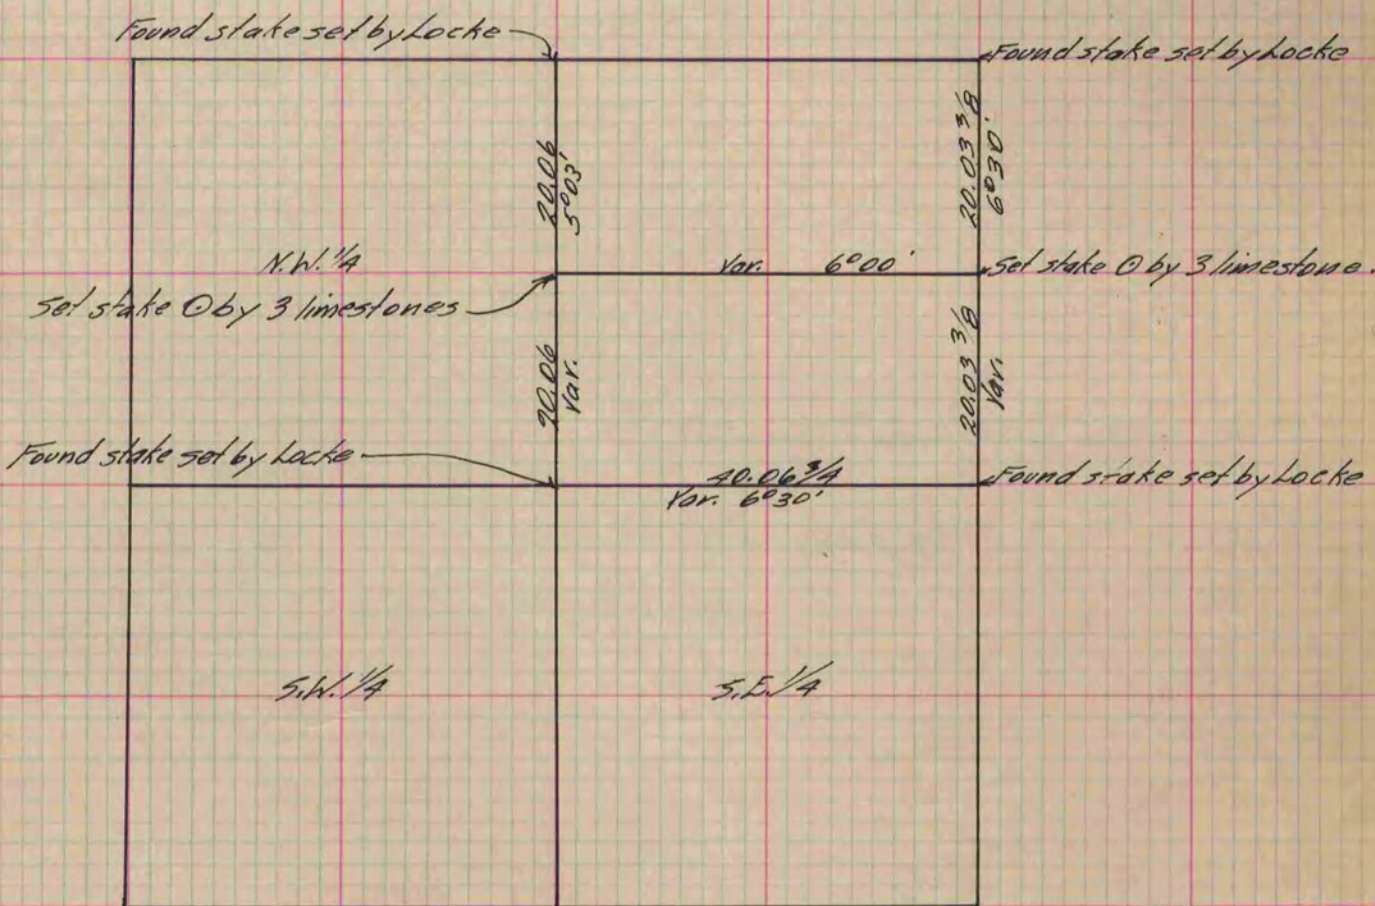 Found stake set by Locke
Found stake set by Locke
20.06
5°03'
20.03 3/8
6°30'
N.W. 1/4
Var. 6°00'
Set stake ⊙ by 3 limestone.
Set stake ⊙ by 3 limestones
20.06
Var.
20.03 3/8
Var.
Found stake set by Locke
40.06 3/4
Var. 6°30'
Found stake set by Locke
S.W. 1/4
S.E. 1/4